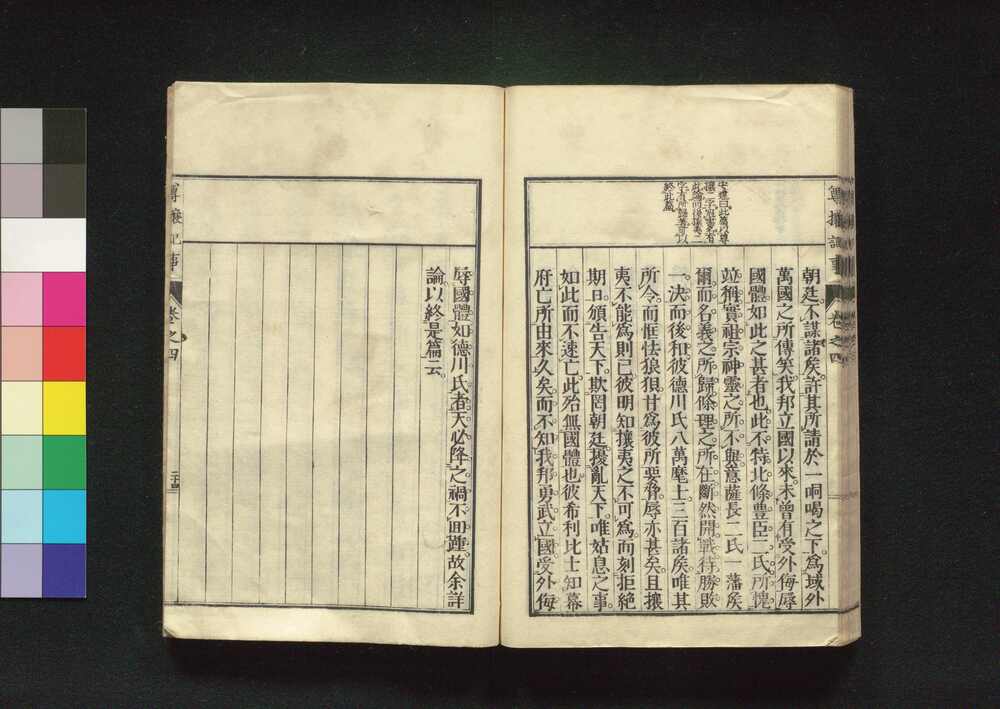 尊攘記事
卷之四
朝廷。不謀諸矦。許其所請於一哃喝之下。爲域外
萬國之所傳笑。我邦立國以來。未曾有受外侮辱
國體如此之甚者也。此不特北條豊臣二氏所愧。
並稱實祖宗神靈之所不與。意薩長二氏一藩矦
爾。而名義之所歸。條理之所在。斷然開戰。待勝敗
一決而後和。彼德川氏八萬麾士。三百諸矦。唯其
所令。而恇怯狼狽。甘爲彼所要脅。辱亦甚矣。且攘
夷不能爲。則已彼明知攘夷之不可爲。而刻拒絕
期日。頒告天下。欺罔朝廷。擾亂天下。唯姑息之事。
如此而不速亡。此殆無國體也。彼希利比士知幕
府亡所由來久矣。而不知我邦勇武立國。受外侮
尊攘記事
卷之四
二十四
辱國體如德川氏者。天必降之禍。不回踵。故余詳
論以終是篇云。